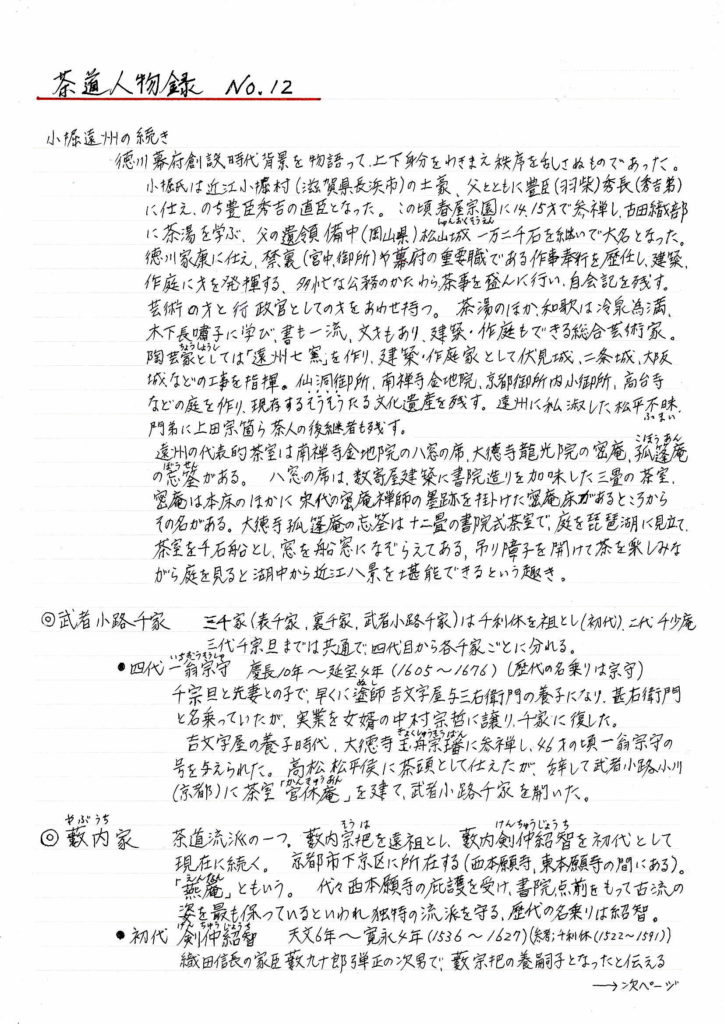 茶道人物録 No.12
小堀遠州の続き
徳川幕府創設時代背景を物語って、上下身分をわきまえ秩序を乱さぬものであった。
小堀氏は近江小堀村(滋賀県長浜市)の土豪、父とともに豊臣(羽柴)秀長(秀吉弟)
に仕え、のち豊臣秀吉の直臣となった。この頃春屋宗園に14.15才で参禅し、古田織部
しゅんおくそうえん
に茶湯を学ぶ、父の遺領備中(岡山県)松山城一万二千石を継いで大名となった。
徳川家康に仕え、禁裏(宮中、御所)や幕府の重要職である作事奉行を歴任し、建築、
作庭に才を発揮する、多忙な公務のかたわら茶事を盛んに行い、自会記を残す。
芸術の才と行政官としての才をあわせ持つ。茶湯のほか、和歌は冷泉為満、
木下長嘯子に学び、書も一流、文才もあり、建築・作庭もできる総合芸術家。
ちょうしょうし
陶芸家としては「遠州七窯」を作り、建築・作庭家として伏見城、二条城、大阪
城などの工事を指揮。仙洞御所、南禅寺金地院、京都御所内小御所、高台寺
などの庭を作り、現存するそうそうたる文化遺産を残す。遠州に私淑した松平不昧、
ふまい
門弟に上田宗箇ら茶人の後継者も残す。
遠州の代表的茶室は南禅寺金地院の八窓の席、大徳寺龍光院の密庵、孤篷庵
こほうあん
の忘筌がある。八窓の席は、数寄屋建築に書院造りを加味した三畳の茶室、
ぼうせん
密庵は本床のほかに宋代の密庵禅師の墨跡を掛けた密庵床があるところから
その名がある。大徳寺孤篷庵の忘筌は十二畳の書院式茶室で、庭を琵琶湖に見立て、
茶室を千石船とし、窓を船窓になぞらえてある、吊り障子を開けて茶を楽しみな
がら庭を見ると湖中から近江八景を堪能できるという趣き。
◎武者小路千家 三千家(表千家、裏千家、武者小路千家)は千利休を祖とし(初代)、二代千少庵
三代千宗旦までは共通で、四代目から各千家ごとに分れる。
いちおうそうしゅ
●四代一翁宗守 慶長10年〜延宝4年(1605〜1676)(歴代の名乗りは宗守)
千宗旦と先妻との子で、早くに塗師吉文字屋与三右衛門の養子になり、甚右衛門
ぬし
と名乗っていたが、実業を女婿の中村宗哲に譲り、千家に復した。
ぎょくしゅうそうばん
吉文字屋の養子時代、大徳寺玉舟宗璠に参禅し、46才の頃一翁宗守の
号を与えられた。高松松平侯に茶頭として仕えたが、辞して武者小路小川
かんきゅうあん
(京都)に茶室「官休庵」を建て、武者小路千家を開いた。
やぶうち
◎藪内家 茶道流派の一つ。藪内宗把を遠祖とし、藪内剣仲紹智を初代として
そうは けんちゅうじょうち
現在に続く。京都市下京区に所在する(西本願寺、東本願寺の間にある)。
えんなん
「燕庵」ともいう。代々西本願寺の庇護を受け、書院点前をもって古流の
姿を最も保っているといわれ独特の流派を守る、歴代の名乗りは紹智。
けんちゅうじょうち
●初代 剣仲紹智 天文6年〜寛永4年(1536〜1627)(参考;千利休(1522〜1591))
織田信長の家臣藪九十郎弾正の次男で、藪宗把の養嗣子となったと伝える
→次ページ